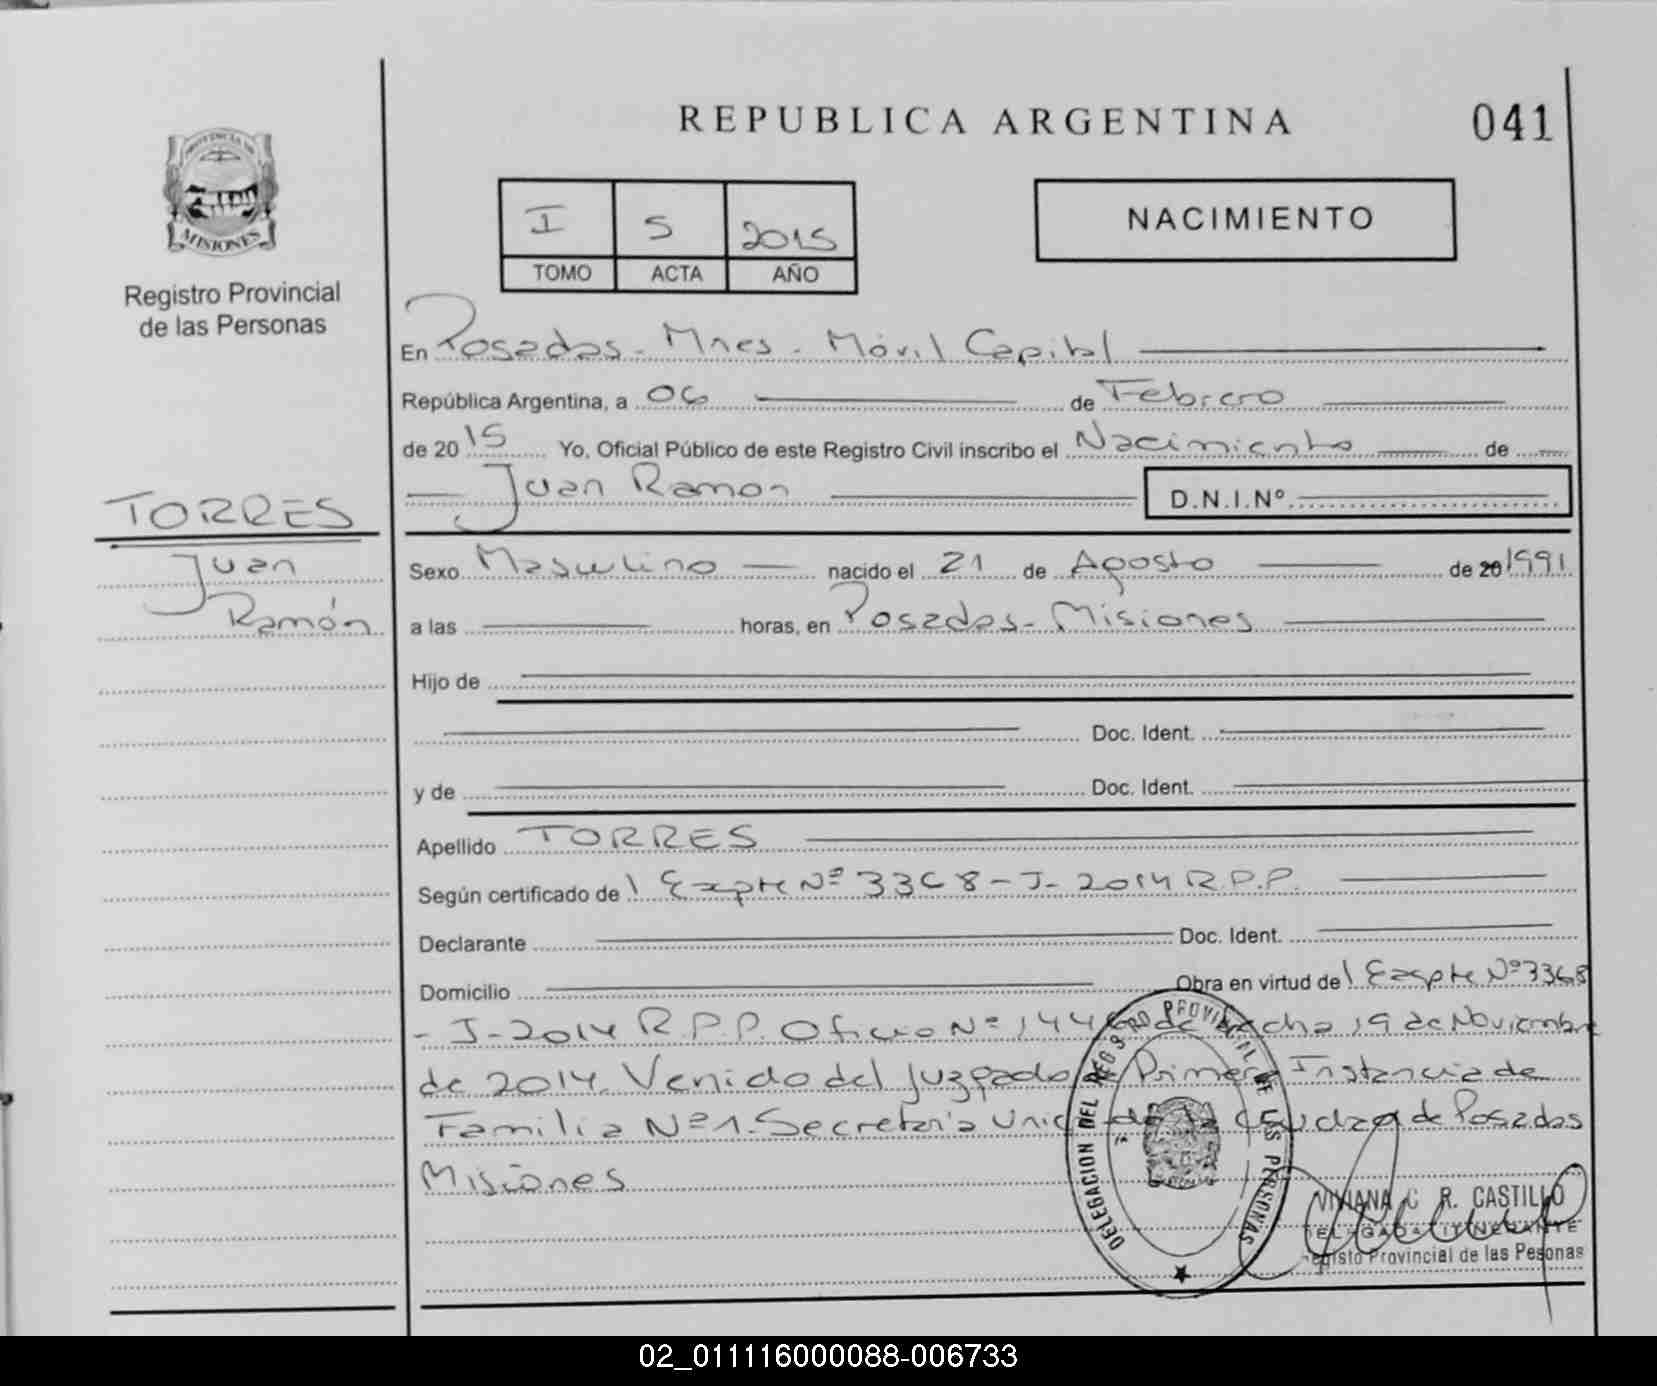 REPUBLICA ARGENTINA
041
PROVINCIA DE
MISIONES
Registro Provincial
de las Personas
I 5 2015
TOMO ACTA AÑO
NACIMIENTO
En Posadas - Mnes - Móvil Capital
República Argentina, a 06 de Febrero
de 2015 Yo, Oficial Público de este Registro Civil inscribo el Nacimiento de
Juan Ramon D.N.I.Nº
TORRES
Juan
Ramón
Sexo Masculino nacido el 21 de Agosto de 20 1991
a las horas, en Posadas - Misiones
Hijo de
Doc. Ident.
y de Doc. Ident.
Apellido TORRES
Según certificado de Expte Nº 3368 - J - 2014 R.P.P.
Declarante Doc. Ident.
Domicilio Obra en virtud de Expte Nº 3368
- J - 2014 R.P.P. Oficio Nº de fecha 19 de Noviembre
de 2014. Venido del Juzgado Primera Instancia de
Familia Nº 1. Secretaria Unica de la Ciudad de Posadas
Misiones
DELEGACION DEL REGISTRO PROVINCIAL DE LAS PERSONAS
VIVIANA C R. CASTILLO
DELEGADA ITINERANTE
Registo Provincial de las Pesonas
02_011116000088-006733